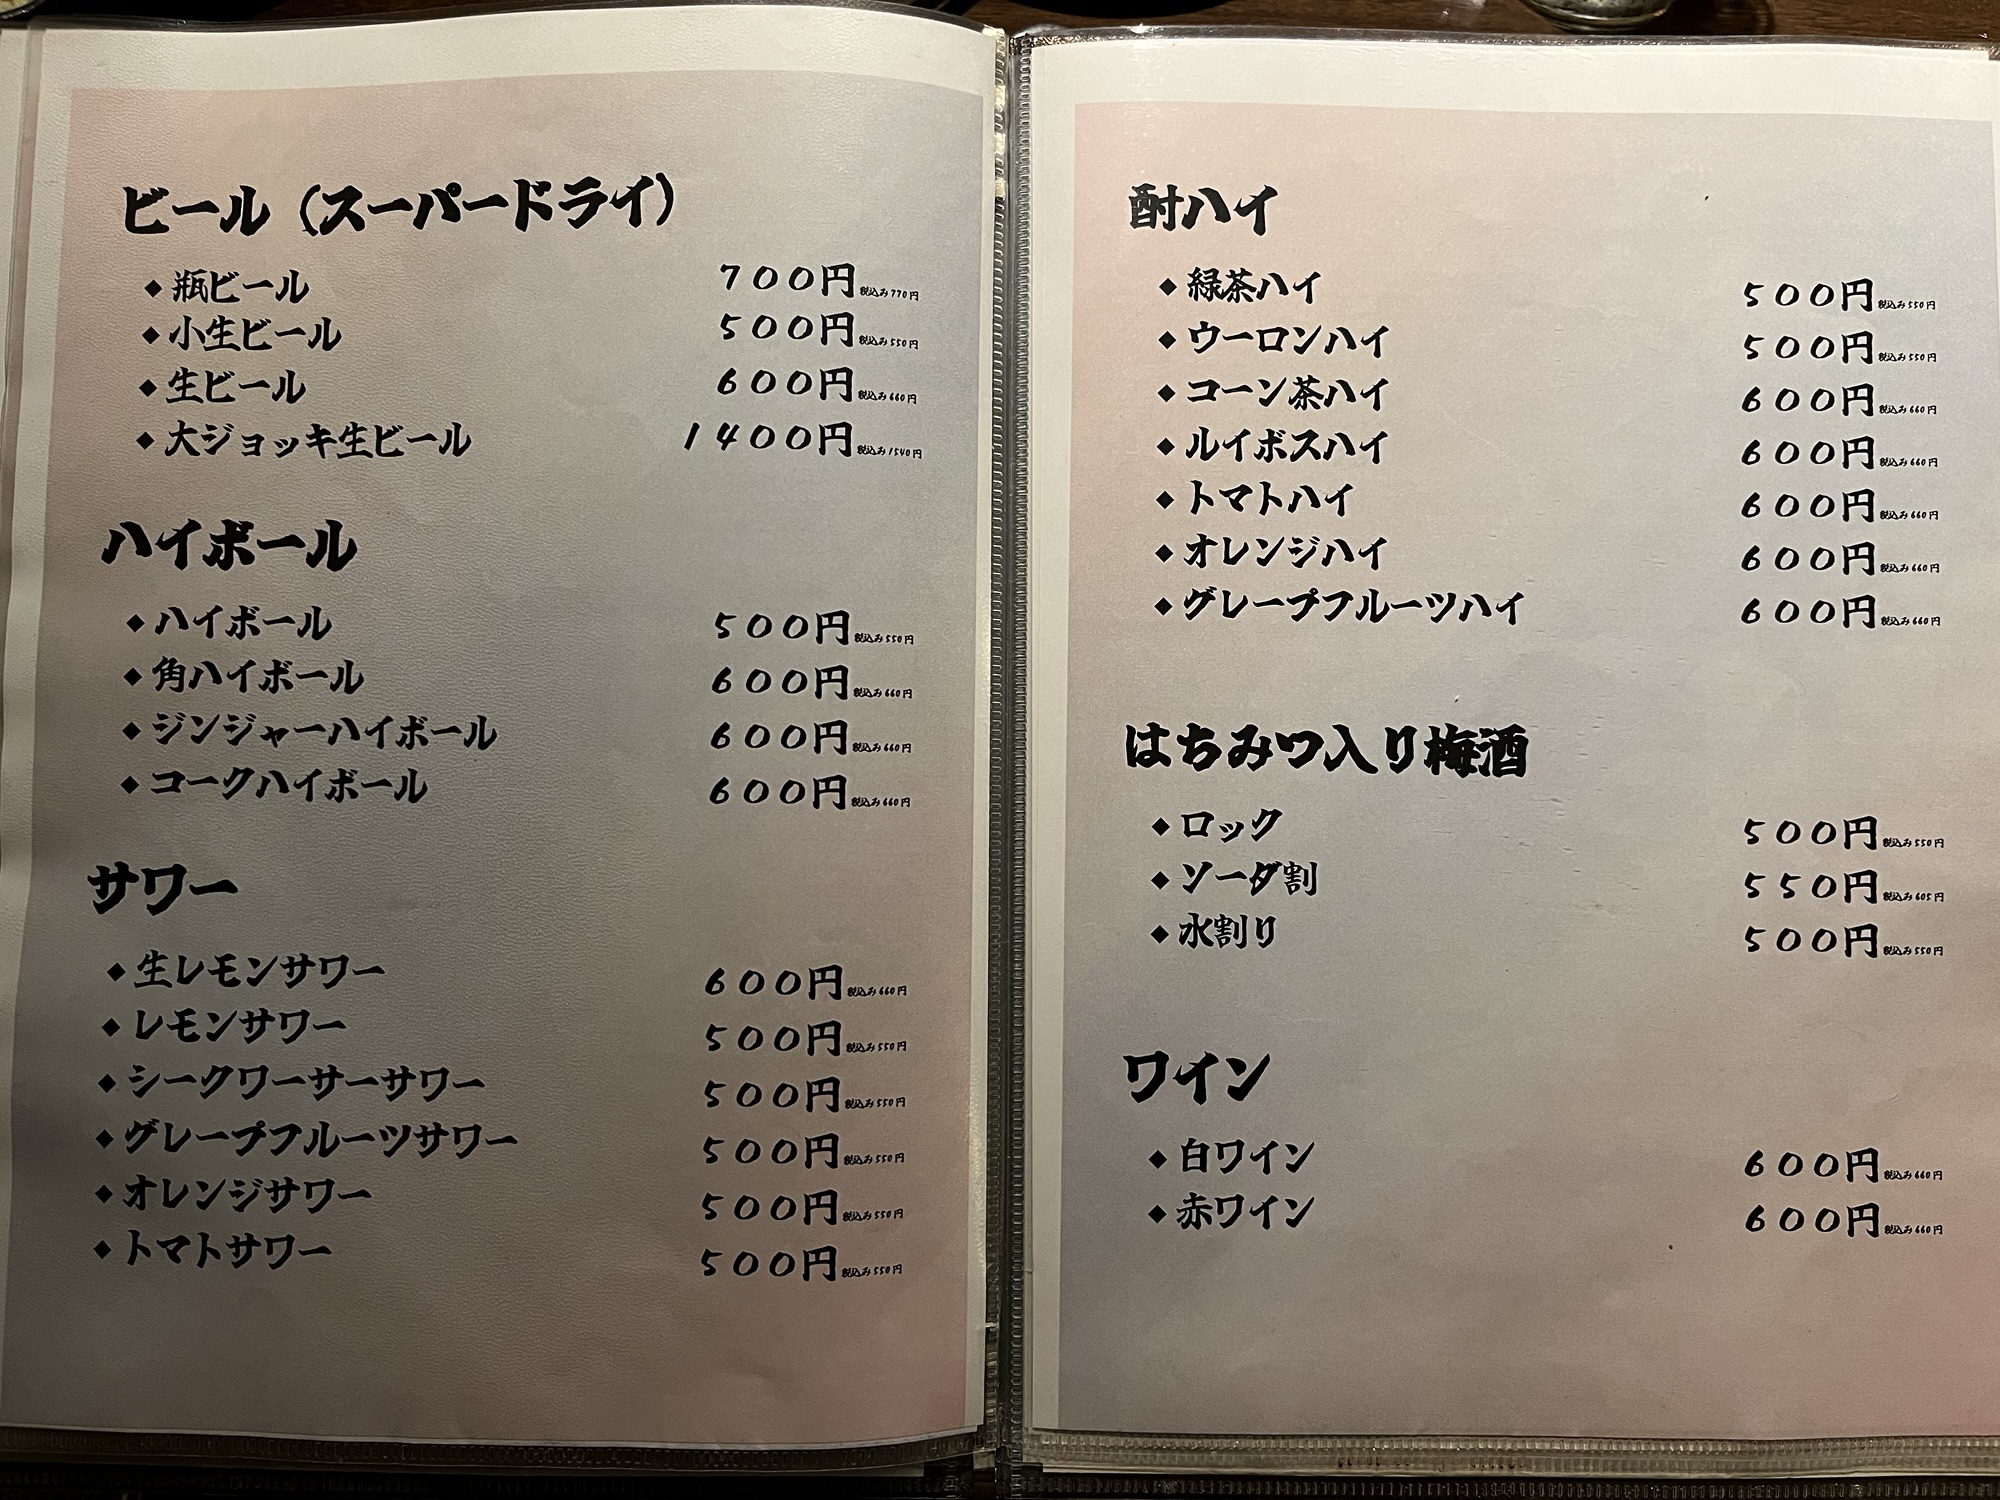 ビール（スーパードライ）
◆瓶ビール 700円 税込み770円
◆小生ビール 500円 税込み550円
◆生ビール 600円 税込み660円
◆大ジョッキ生ビール 1400円 税込み1540円
ハイボール
◆ハイボール 500円 税込み550円
◆角ハイボール 600円 税込み660円
◆ジンジャーハイボール 600円 税込み660円
◆コークハイボール 600円 税込み660円
サワー
◆生レモンサワー 600円 税込み660円
◆レモンサワー 500円 税込み550円
◆シークワーサーサワー 500円 税込み550円
◆グレープフルーツサワー 500円 税込み550円
◆オレンジサワー 500円 税込み550円
◆トマトサワー 500円 税込み550円
酎ハイ
◆緑茶ハイ 500円 税込み550円
◆ウーロンハイ 500円 税込み550円
◆コーン茶ハイ 600円 税込み660円
◆ルイボスハイ 600円 税込み660円
◆トマトハイ 600円 税込み660円
◆オレンジハイ 600円 税込み660円
◆グレープフルーツハイ 600円 税込み660円
はちみつ入り梅酒
◆ロック 500円 税込み550円
◆ソーダ割 550円 税込み605円
◆水割り 500円 税込み550円
ワイン
◆白ワイン 600円 税込み660円
◆赤ワイン 600円 税込み660円